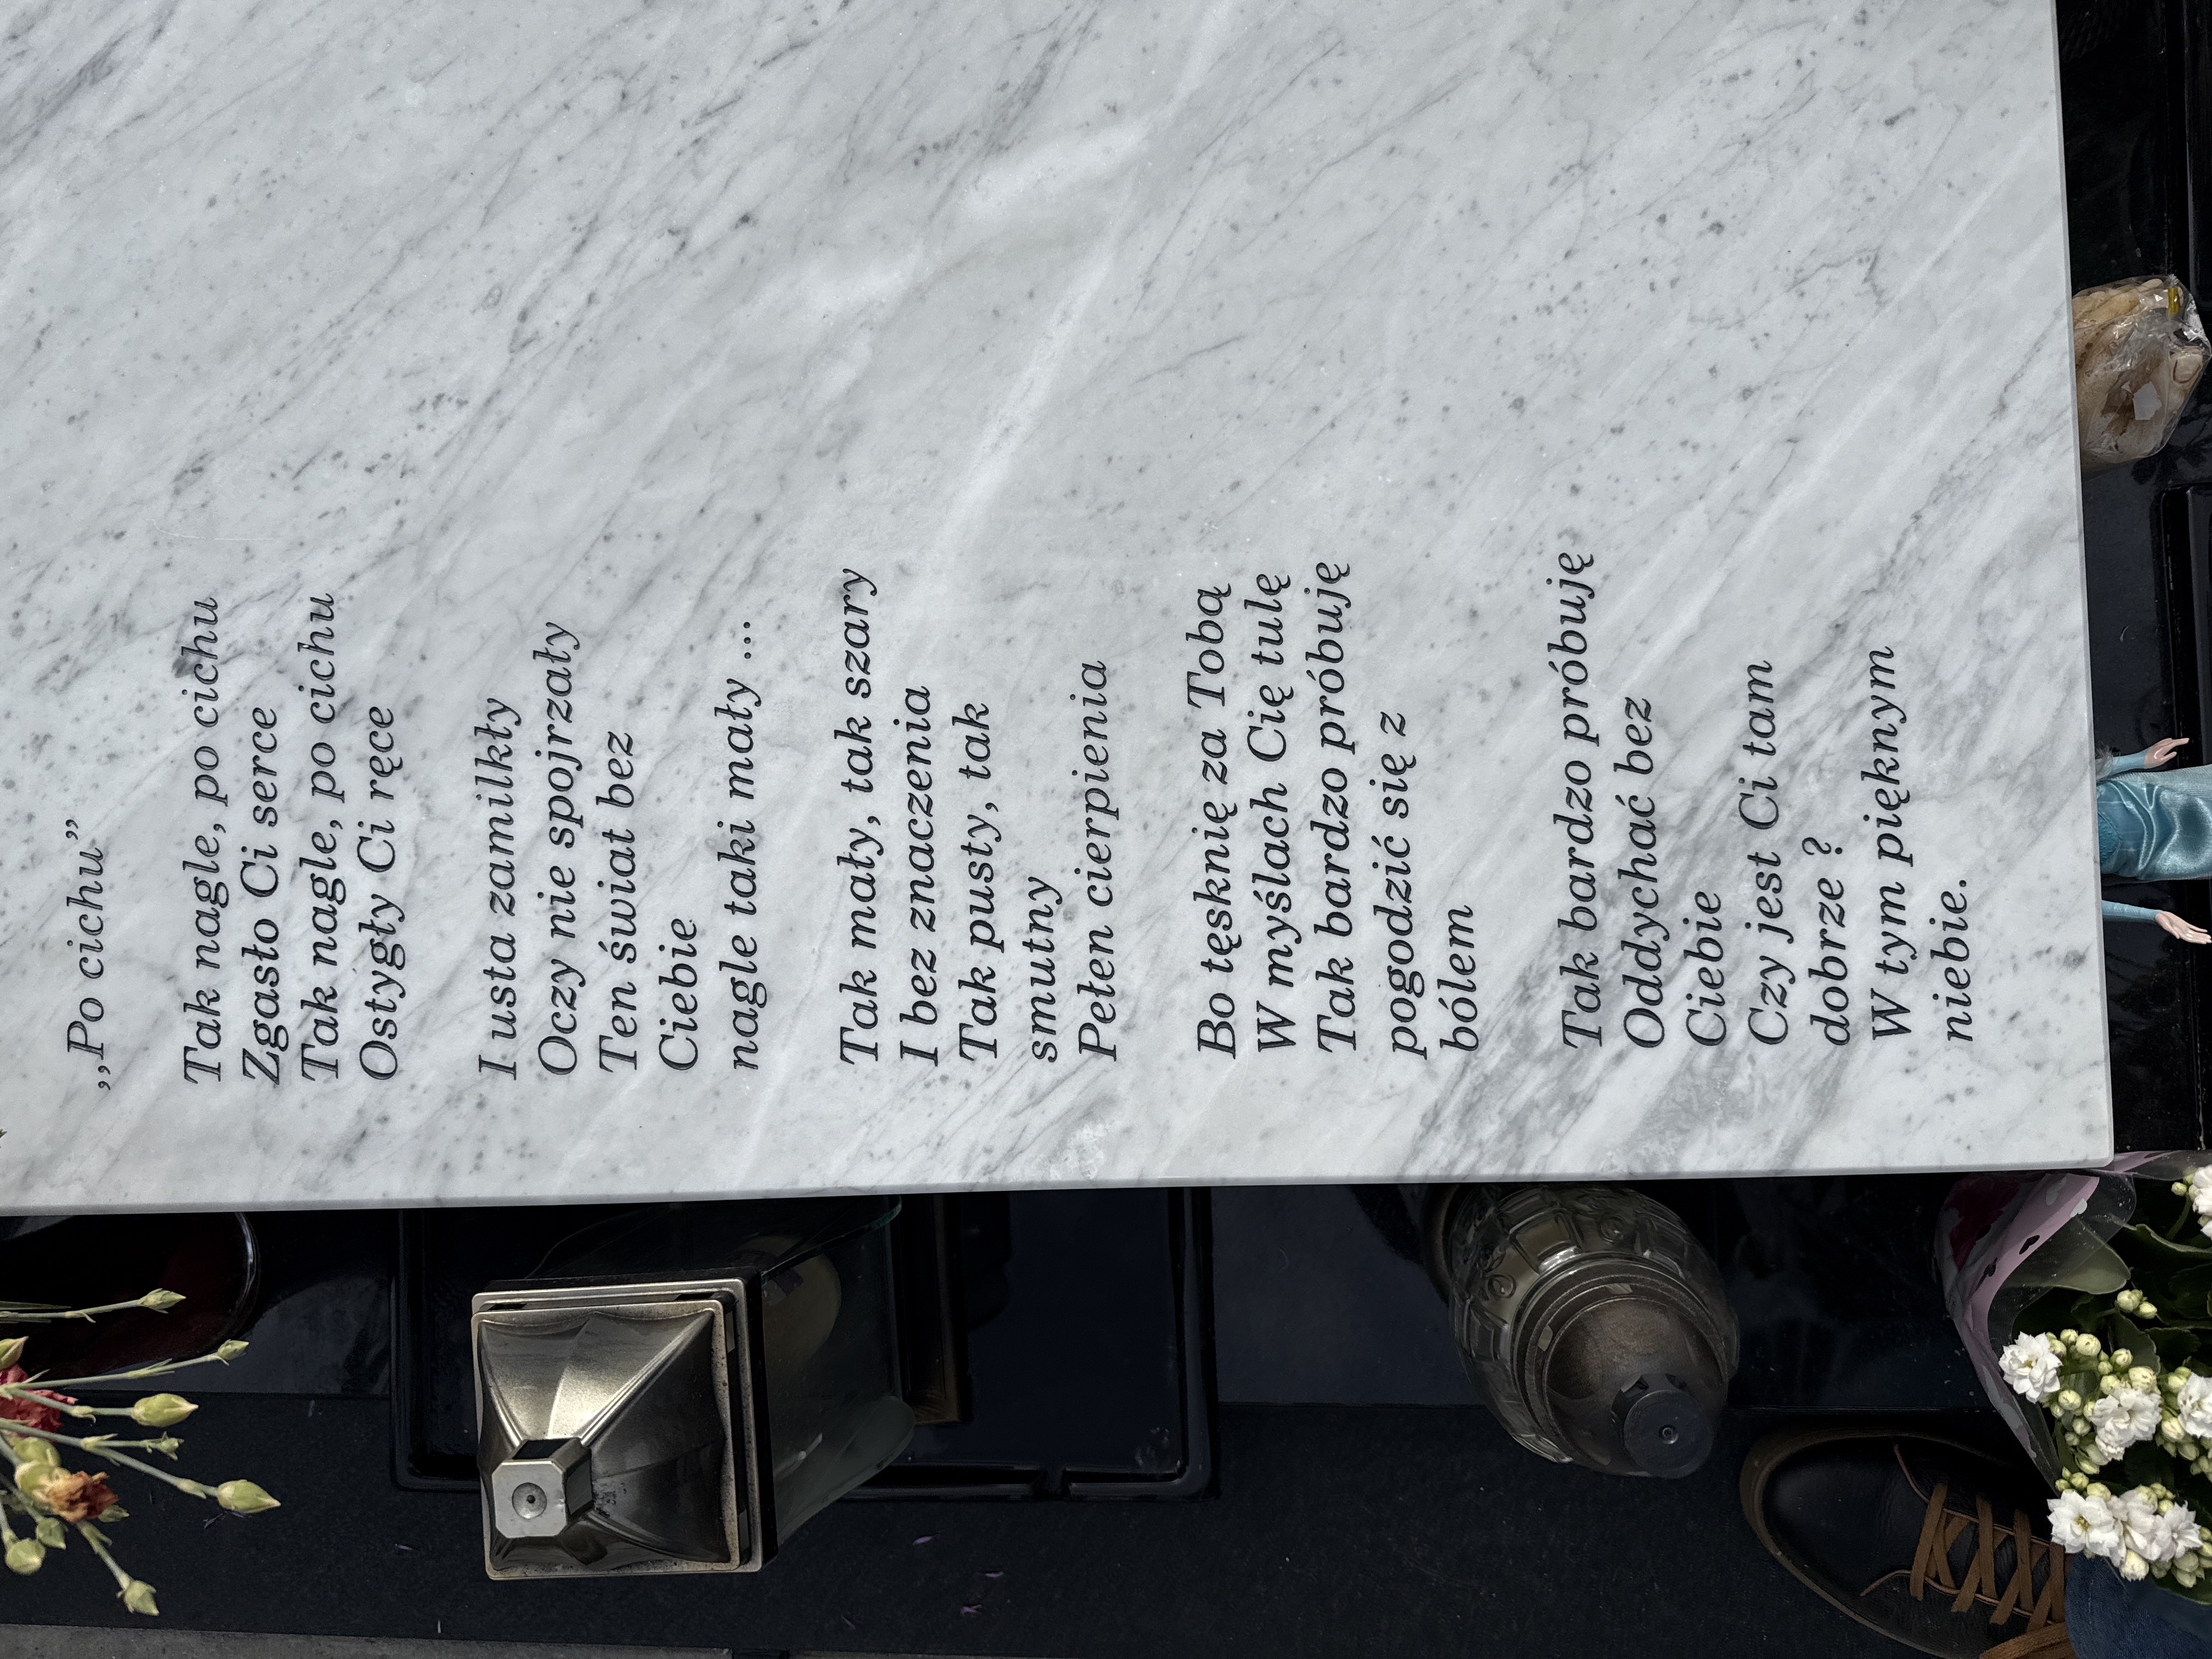 ,,Po cichu”
Tak nagle, po cichu
Zgasło Ci serce
Tak nagle, po cichu
Ostygły Ci ręce
I usta zamilkły
Oczy nie spojrzały
Ten świat bez
Ciebie
nagle taki mały ...
Tak mały, tak szary
I bez znaczenia
Tak pusty, tak
smutny
Pełen cierpienia
Bo tęsknię za Tobą
W myślach Cię tulę
Tak bardzo próbuję
pogodzić się z
bólem
Tak bardzo próbuję
Oddychać bez
Ciebie
Czy jest Ci tam
dobrze ?
W tym pięknym
niebie.